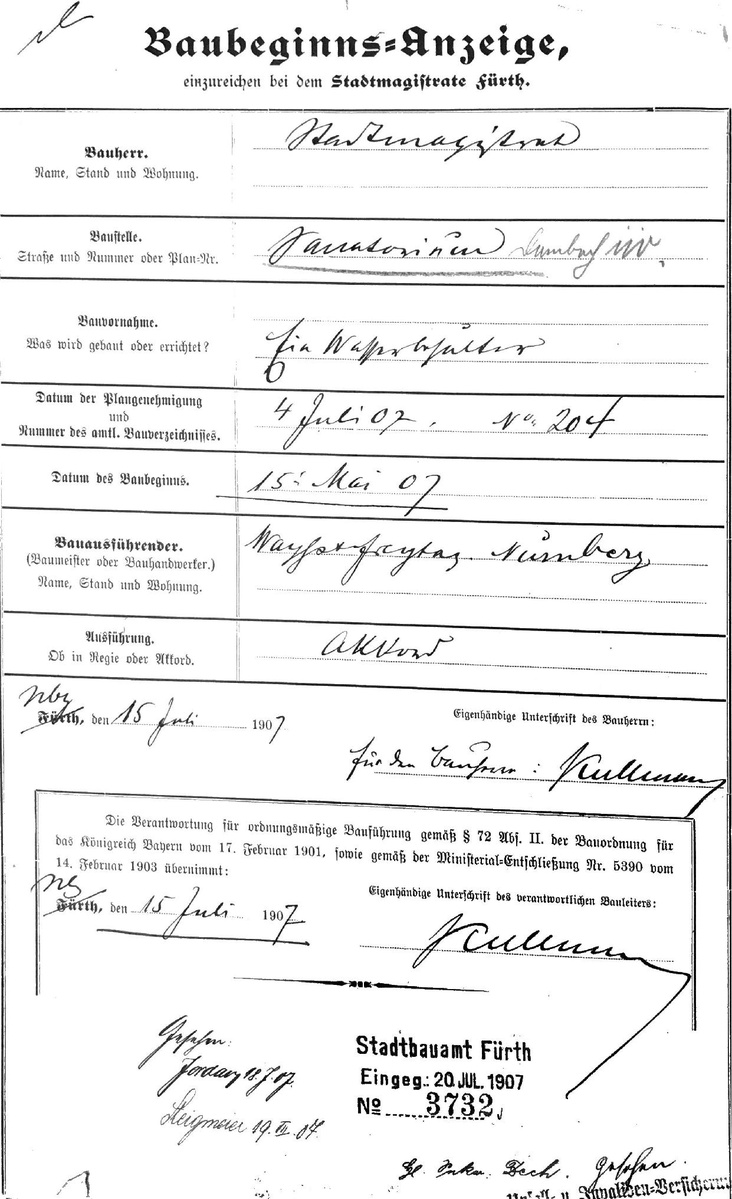 Baubeginns-Anzeige,
einzureichen bei dem Stadtmagistrate Fürth.
Bauherr.
Name, Stand und Wohnung.
Stadtmagistrat
Baustelle.
Straße und Nummer oder Plan-Nr.
Sanatorium Dambach
Bauvornahme.
Was wird gebaut oder errichtet?
Ein Wasserbehälter
Datum der Plangenehmigung
und
Nummer des amtl. Bauverzeichnisses.
4 Juli 07. No. 204
Datum des Baubeginns.
15. Mai 07
Bauausführender.
(Baumeister oder Bauhandwerker.)
Name, Stand und Wohnung.
Wayss & Freytag Nürnberg
Ausführung.
Ob in Regie oder Akkord.
Akkord
Nbg
Fürth, den 15 Juli 1907
Eigenhändige Unterschrift des Bauherrn:
für den Bauherrn: Kullmann
Die Verantwortung für ordnungsmäßige Bauführung gemäß § 72 Abs. II. der Bauordnung für
das Königreich Bayern vom 17. Februar 1901, sowie gemäß der Ministerial-Entschließung Nr. 5390 vom
14. Februar 1903 übernimmt:
Nbg
Fürth, den 15 Juli 1907
Eigenhändige Unterschrift des verantwortlichen Bauleiters:
Kullmann
Gesehen:
Jordan 18.7.07.
19. VII 07.
Stadtbauamt Fürth
Eingeg.: 20. JUL. 1907
No 3732
Gesehen
Invaliden-Versicherung